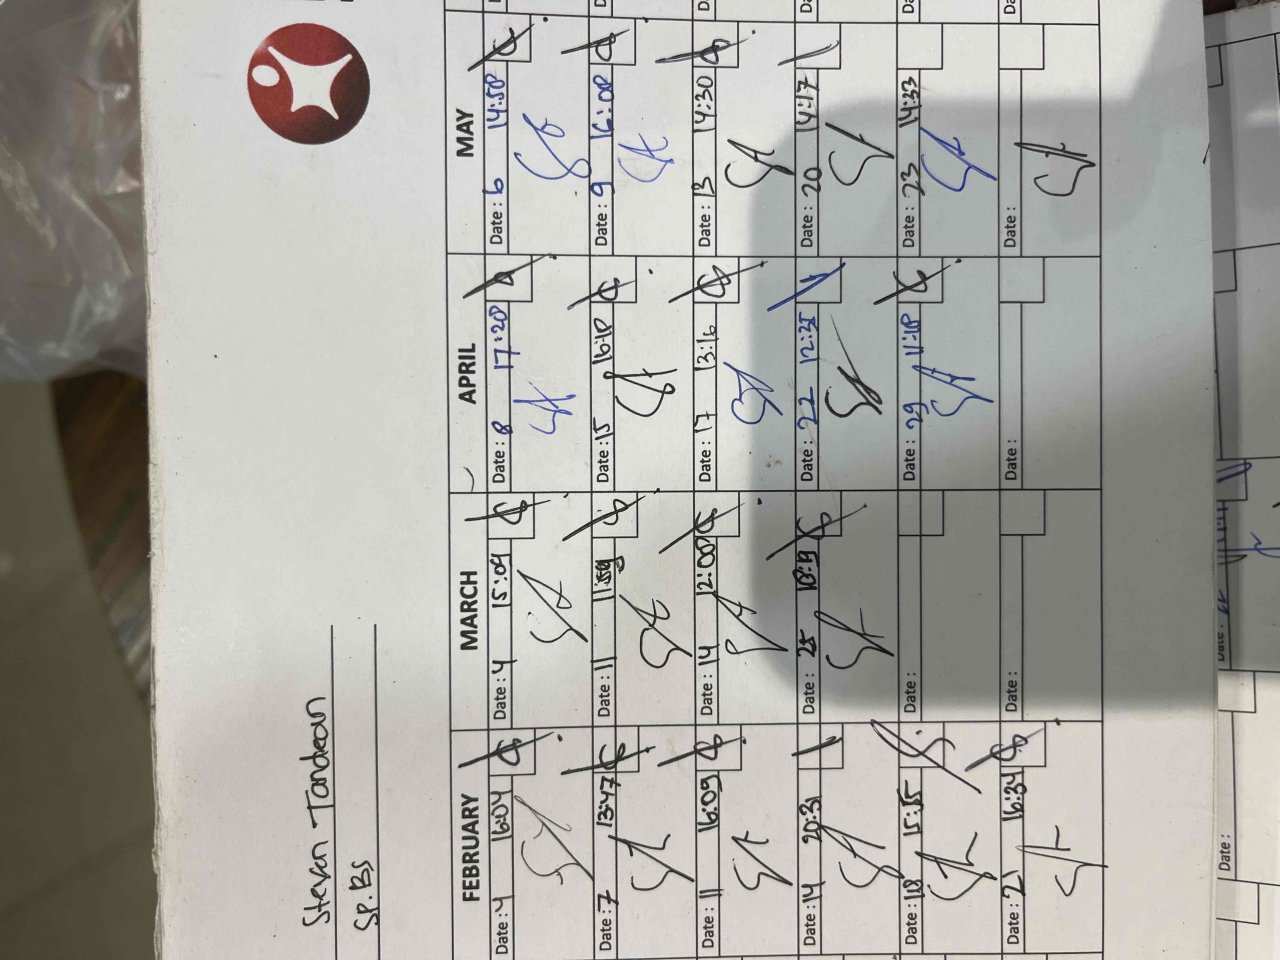 Steven Tandean
Sp.BS
FEBRUARY MARCH APRIL MAY
Date: 4 16:04 Date: 4 15:04 Date: 8 17:20 Date: 6 14:50
Date: 7 13:47 Date: 11 11:59 Date: 15 16:10 Date: 9 16:00
Date: 11 16:09 Date: 14 12:00 Date: 17 13:16 Date: 13 14:30
Date: 14 20:31 Date: 25 Date: 22 12:35 Date: 20 14:17
Date: 18 15:55 Date: Date: 29 11:10 Date: 23 14:33
Date: 21 16:34 Date: Date: Date:
Date: